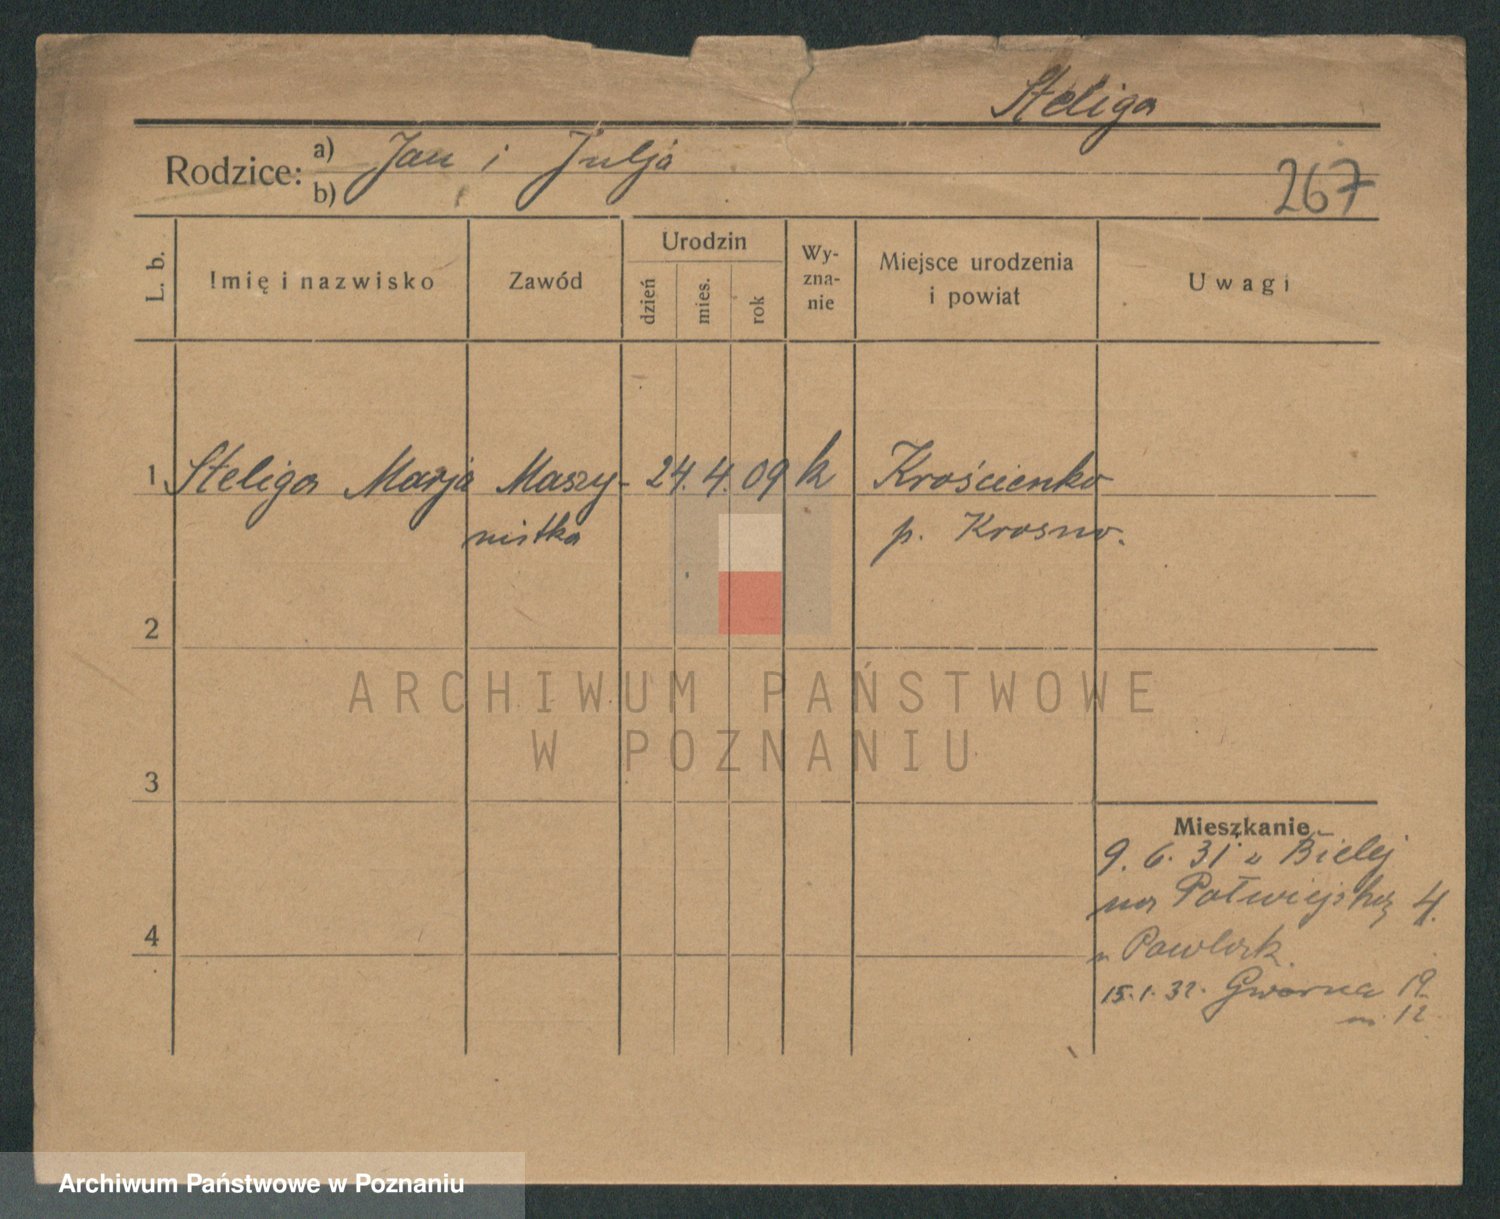 Steliga
Rodzice: a) Jan i Julja
b)
267
L. b.
Imię i nazwisko
Zawód
Urodzin
dzień
mies.
rok
Wy-
zna-
nie
Miejsce urodzenia
i powiat
Uwagi
1 Steliga Marja Maszy- 24. 4. 09 k Krościenko
nistka p. Krosno.
2
3
4
ARCHIWUM PAŃSTWOWE
W POZNANIU
Mieszkanie
9. 6. 31 Bielej
na Półwiejską 4.
15. 1. 32. Gwarna 19
m. 12
Archiwum Państwowe w Poznaniu